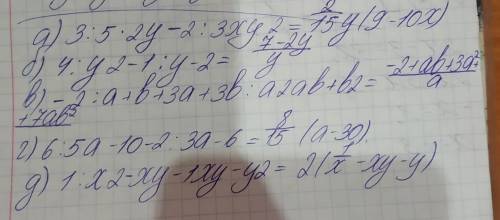 а) 3:5·2y-2:3xy = 2/15 y(9-10x)
б) 4:y2-1:y-2= 7-2y/y
в) -2:a+b+3a+3b:a2ab+b2= -2+ab+3a²+7ab³/a
г) 6:5a-10-2:3a-6= 8/15 (a-30).
д) 1·x2-xy-1xy-y2= 2(1/x-xy-y)